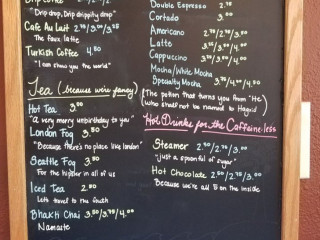 Drip Coffee 2/
"Drip drop, Drip drippity drop"
Cafe Au Lait 2.75/3.00/3.25
The faux latte
Turkish Coffee 4.50
"I can show you the world"
Tea (because we're fancy)
Hot Tea 3.00
"a very merry unbirthday to you"
London Fog 3.50
"Because there's no place like london"
Seattle Fog 3.50
For the hipster in all of us
Iced Tea 2.00
Let's travel to the south
Bhakti Chai 3.50/3.75/4.00
Namaste
Double Espresso 2.75
Cortado 3.00
Americano 2.50/2.75/3.00
Latte 3.25/3.75/4.00
Cappuccino 3.25/3.75/4.00
Mocha/White Mocha
Specialty Mocha 3.75/4.00/4.50
(The potion that turned you from "He
who shall not be named to Hagrid)
Hot Drinks for the Caffeine-less
Steamer 2.50/2.75/3.00
"Just a spoonful of sugar"
Hot Chocolate 2.50/2.75/3.00
Because we're all 5 on the inside